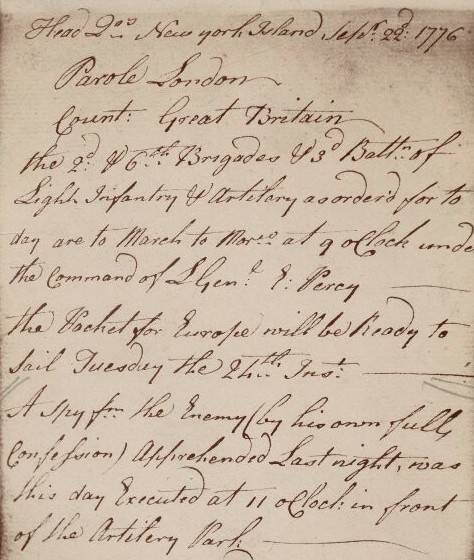 Head Qrs New york Island Sepr. 22d. 1776
Parole London
Count: Great Britain
the 2d. & 6th. Brigades & 3d Battn. of
Light Infantry & Artilery as order'd for to
day are to March to Morow at 9 oClock unde
the Command of L Genl. E: Percy
the Packet for Europe will be Ready to
sail Tuesday the 24th. Inst.
A spy fm the Enemy (by his own full
Confession) Apprehended Last night, was
this day Executed at 11 oClock in front
of the Artilery Park